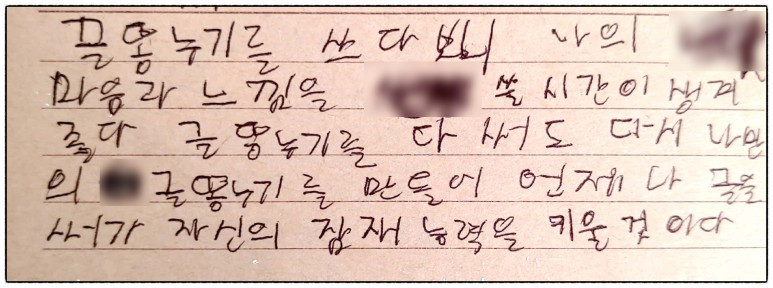 글똥누기를 쓰다 보니 나의
마음과 느낌을 쓸 시간이 생겨
좋다 글똥누기를 다 써도 다시 나만
의 글똥누기를 만들어 언제나 글을
써가 자신의 잠재 능력을 키울 것이다